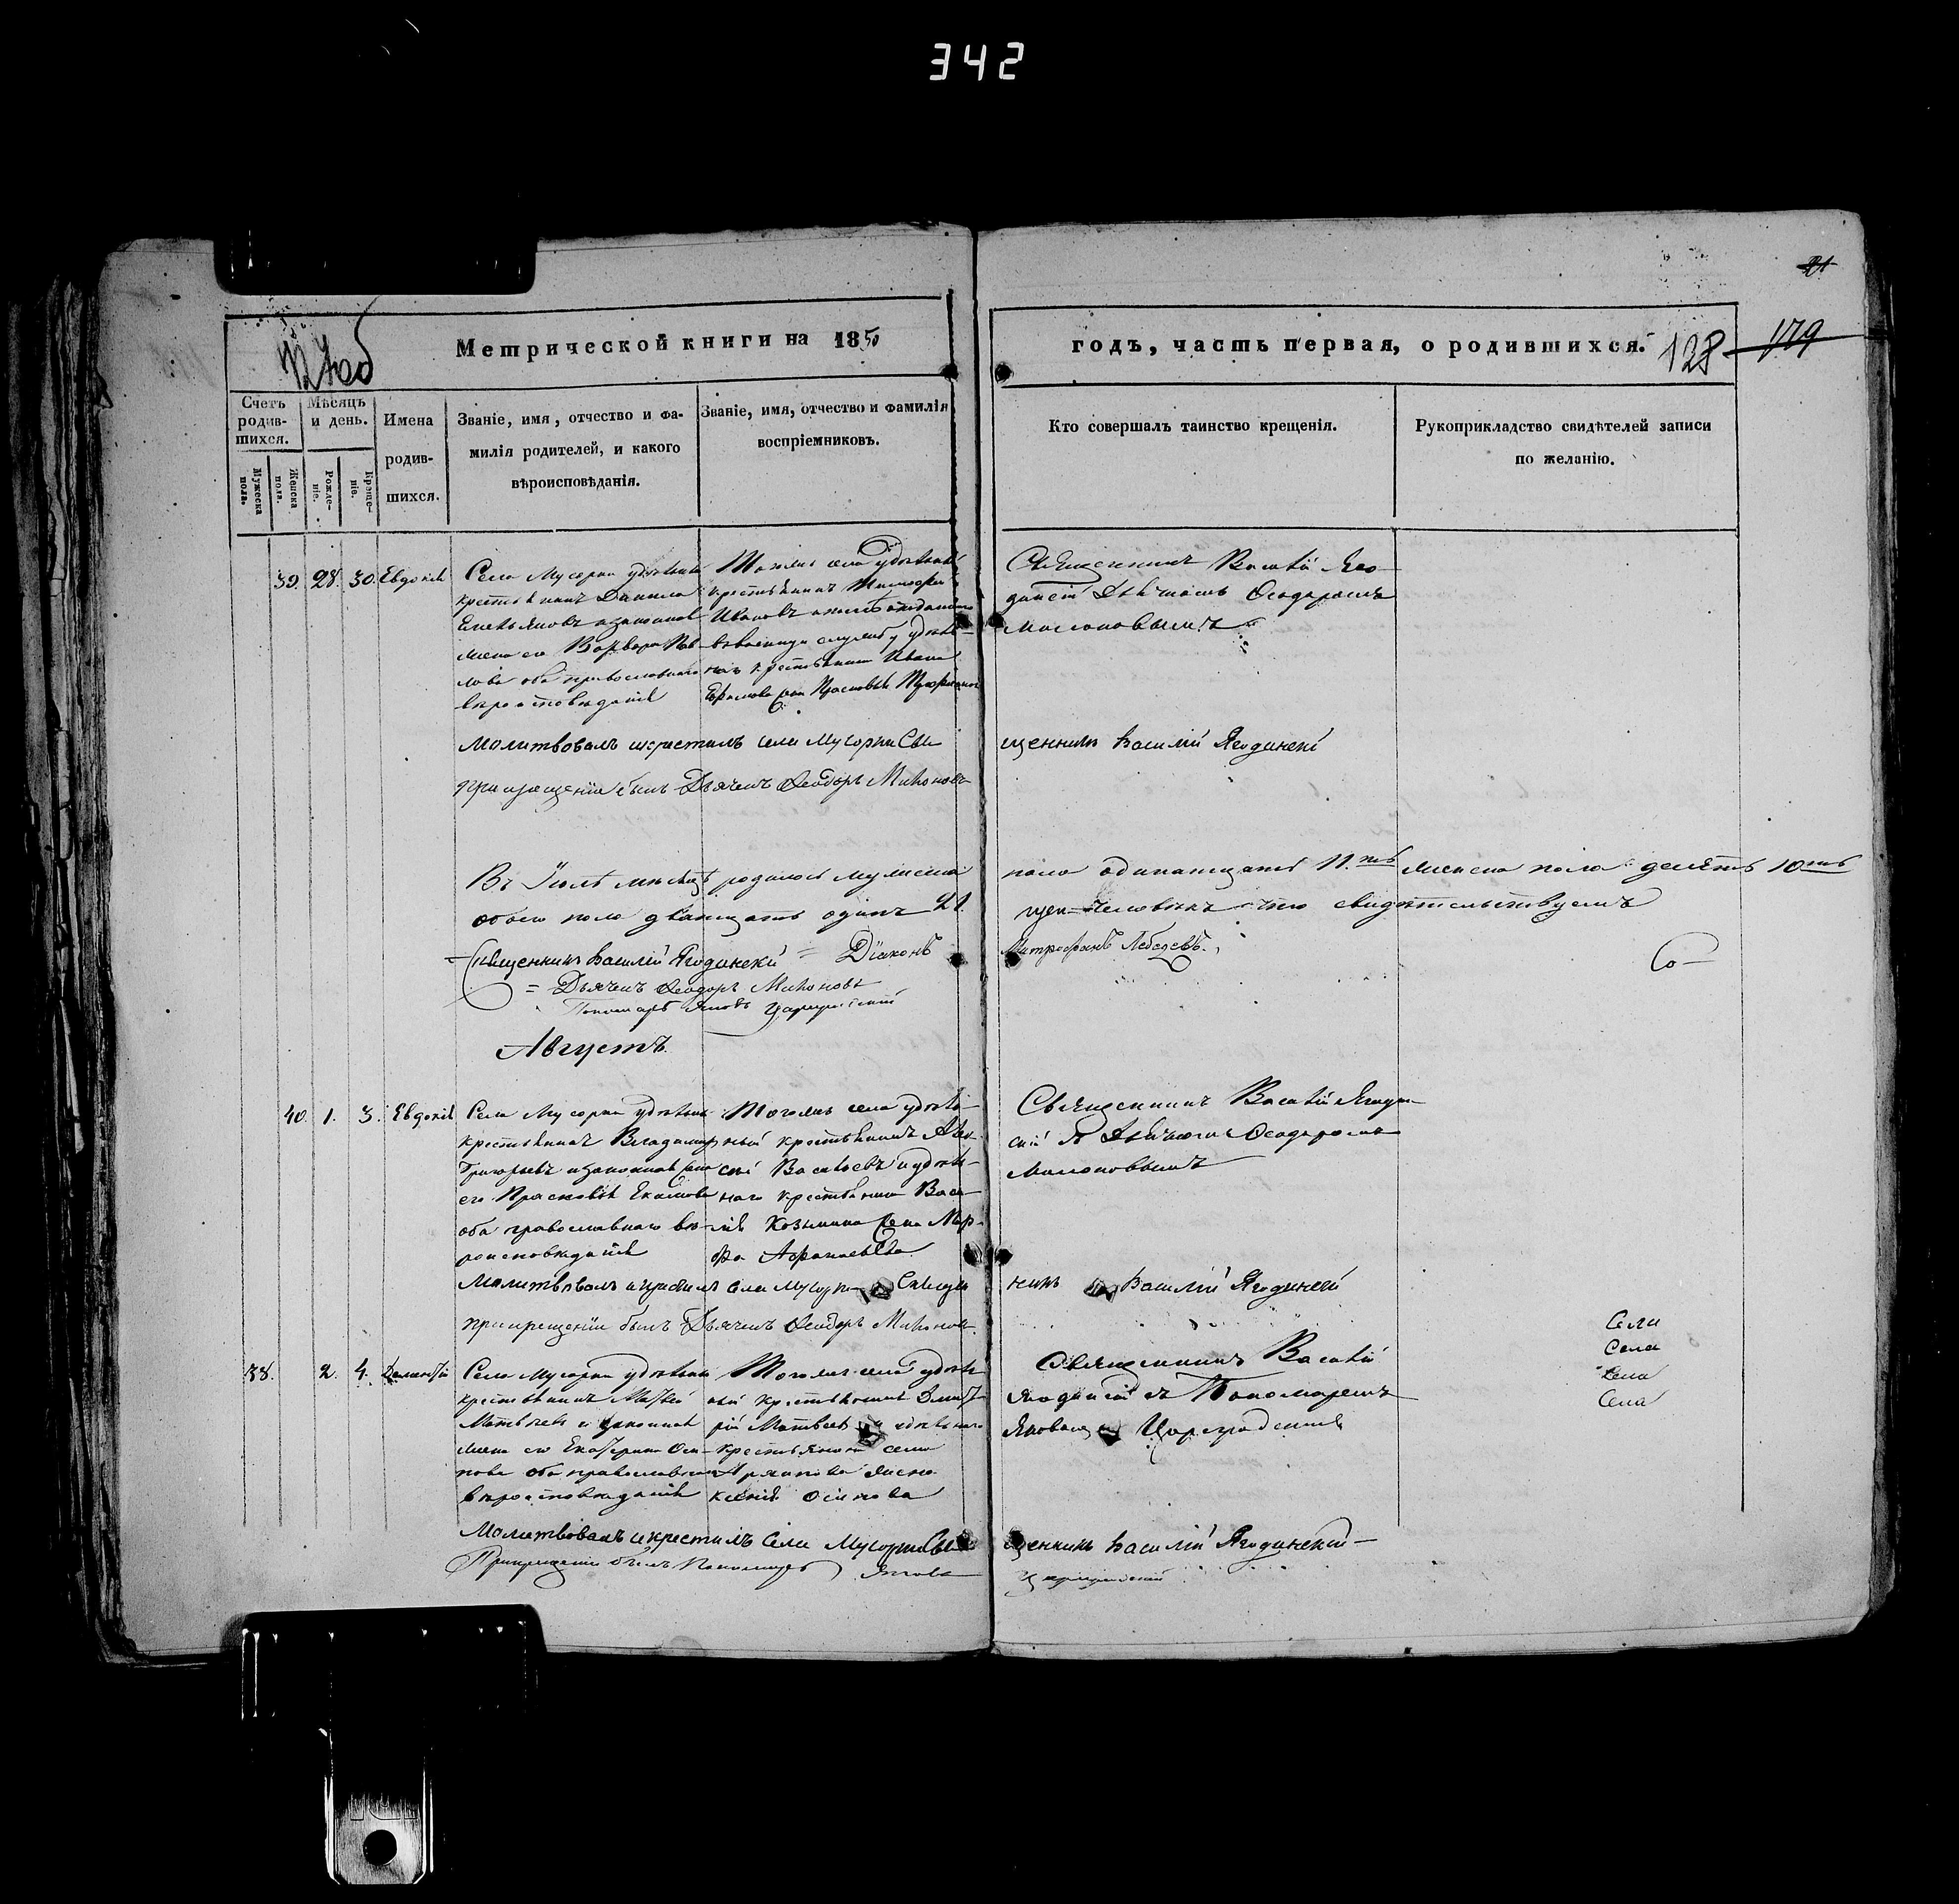 342
21
Метрической книги на 1850
годъ, часть первая, о родившихся.
128
179
Счетъ родив-шихся.
Мужеска пола.
Женска пола.
Мѣсяцъ и день.
Рожде-нiе.
Креще-нiе.
Имена
родив-
шихся.
Званіе, имя, отчество и фа-
милія родителей, и какого
вѣроисповѣданія.
Званіе, имя, отчество и фамилія
воспріемниковъ.
Кто совершалъ таинство крещенія.
Рукоприкладство свидѣтелей записи
по желанію.
39. 28. 30. Евдокія
Села Мусорки удѣльный
крестьянинъ Данила
Емельяновъ и законная
жена его Варвара Пав-
лова оба православнаго
вѣроисповѣданія
Тогожъ села удѣльный
крестьянинъ Тимофей
Ивановъ
въ военную службу удѣль-
наго крестьянина Ивана
Священникъ Василій Яго-
динскій Дьячкомъ Ѳеодоромъ
Молитвовалъ и крестилъ села Мусорки Свя
щенникъ Василій Ягодинскій
При крещеніи былъ Дьячекъ Ѳеодоръ
Въ Іюлѣ мѣсяцѣ родилось мужеска
пола одинатцать 11.ть женска пола десять 10ть
обоего пола дватцать одинъ 21.
человѣкъ что свидѣтельствуемъ
Священникъ Василій Ягодинскій = Діаконъ
Митрофанъ Лебедевъ.
= Дьячекъ Ѳеодоръ
Пономарь Яковъ Цареградскій
Со-
Августъ.
40. 1. 3. Евдокія
Села Мусорки удѣльный
крестьянинъ Владимиръ
Григорьевъ и законная жена
его Прасковья Екимова
оба православнаго вѣ-
роисповѣданія
Тогожъ села удѣль-
ный крестьянинъ Алек-
сѣй Васильевъ и удѣль-
наго крестьянина Васи-
лія Козьмина жена Мар-
фа Афанасьева
Священникъ Василій Ягодин-
скій съ Дьячкомъ Ѳеодоромъ
Молитвовалъ и крестилъ села Мусорки Священ
никъ Василій Ягодинскій
При крещеніи былъ Дьячекъ Ѳеодоръ
Села
Села
Села
Села
38. 2. 4.
Села Мусорки удѣльный
крестьянинъ Матвѣй
Матвѣевъ и законная
жена его Екатерина Оси-
пова оба православнаго
вѣроисповѣданія
Тогожъ села удѣль
ный крестьянинъ Дмит-
рій Матвѣевъ и удѣльнаго
крестьянина
Архипова жена
Ксенія Осипова
Священникъ Василій
Ягодинскій съ Пономаремъ
Яковомъ Цареградскимъ
Молитвовалъ и крестилъ села Мусорки Свя
щенникъ Василій Ягодинскій
При крещеніи былъ Пономарь Яковъ
Цареградскій